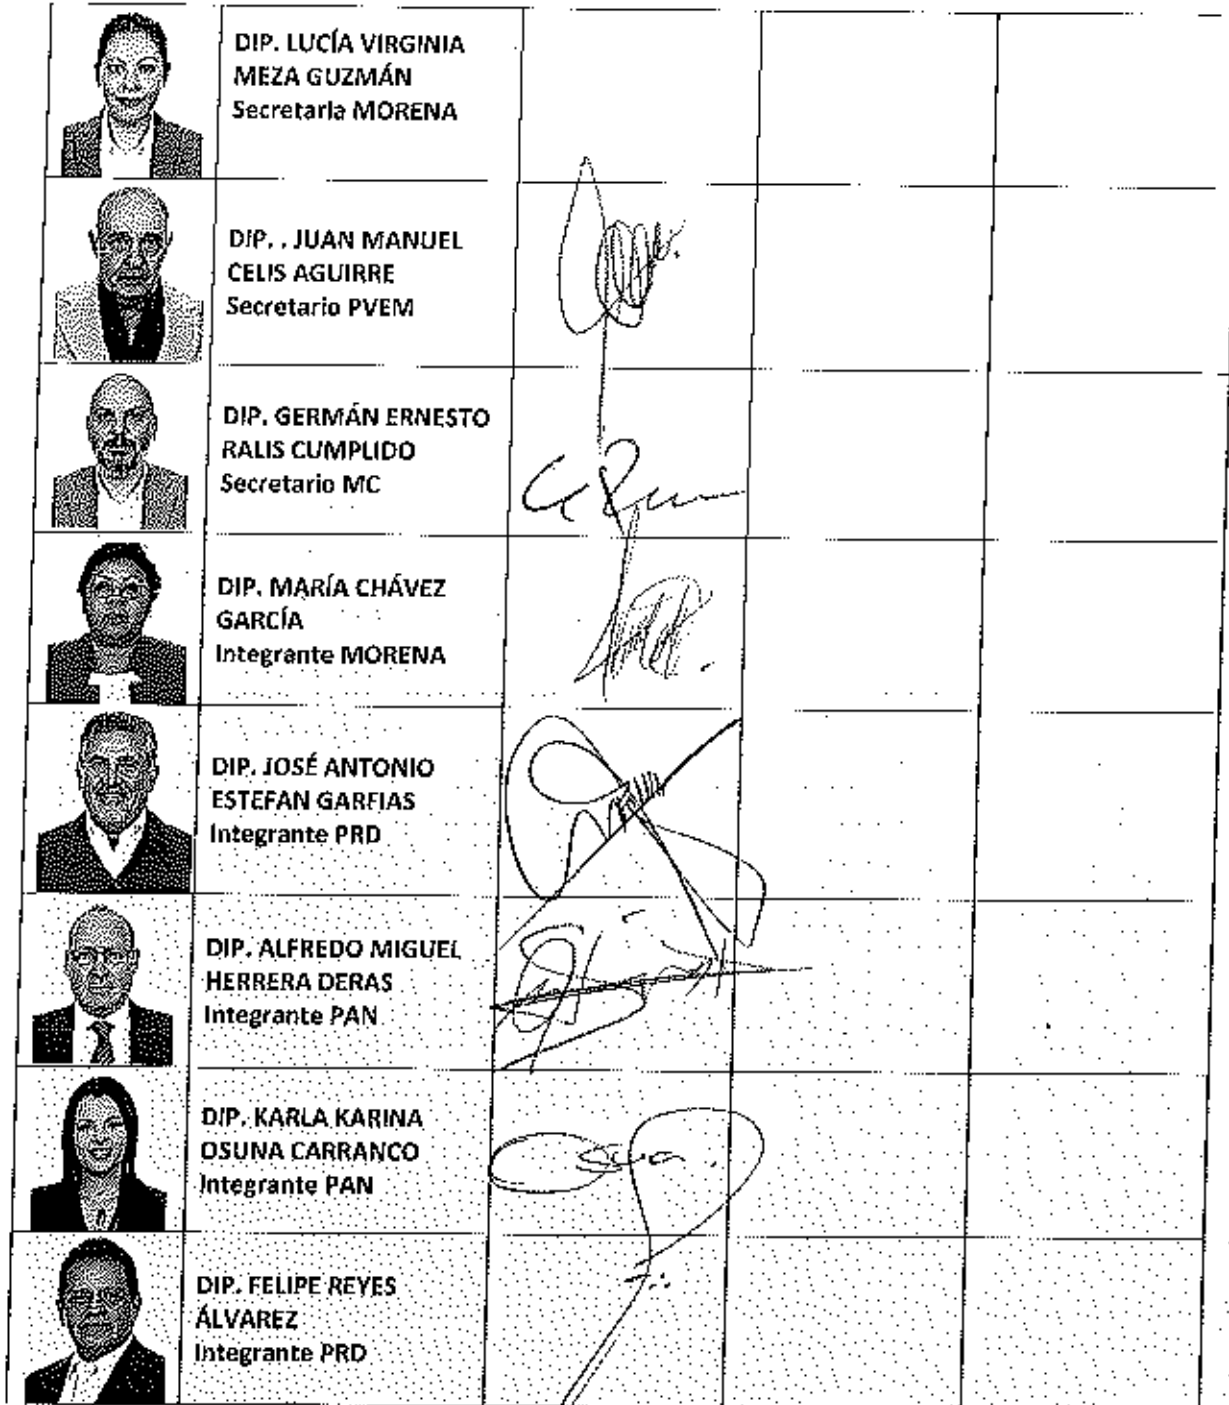 DIP. LUCÍA VIRGINIA
MEZA GUZMÁN
Secretaria MORENA
DIP. . JUAN MANUEL
CELIS AGUIRRE
Secretario PVEM
DIP. GERMÁN ERNESTO
RALIS CUMPLIDO
Secretario MC
DIP. MARÍA CHÁVEZ
GARCÍA
Integrante MORENA
DIP. JOSÉ ANTONIO
ESTEFAN GARFIAS
Integrante PRD
DIP. ALFREDO MIGUEL
HERRERA DERAS
Integrante PAN
DIP. KARLA KARINA
OSUNA CARRANCO
Integrante PAN
DIP. FELIPE REYES
ÁLVAREZ
Integrante PRD